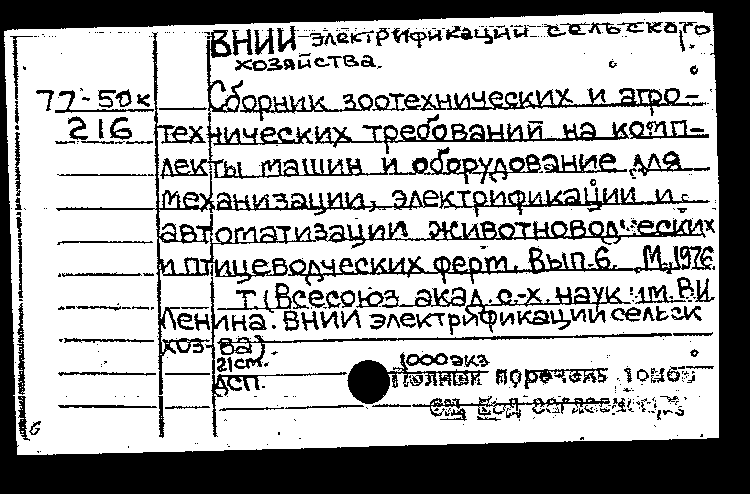 ВНИИ электрификации сельского
хозяйства.
77-50к Сборник зоотехнических и агро-
216 технических требований на комп-
лекты машин и оборудование для
механизации, электрификации и
автоматизации животноводческих
и птицеводческих ферм. Вып.6. М, 1976
т. (Всесоюз акад. с.-х. наук им. В.И.
Ленина. ВНИИ электрификации сельск
хоз-ва).
21см. 1000экз
ДСП. Полный перечень томов
см. под заглавием
6